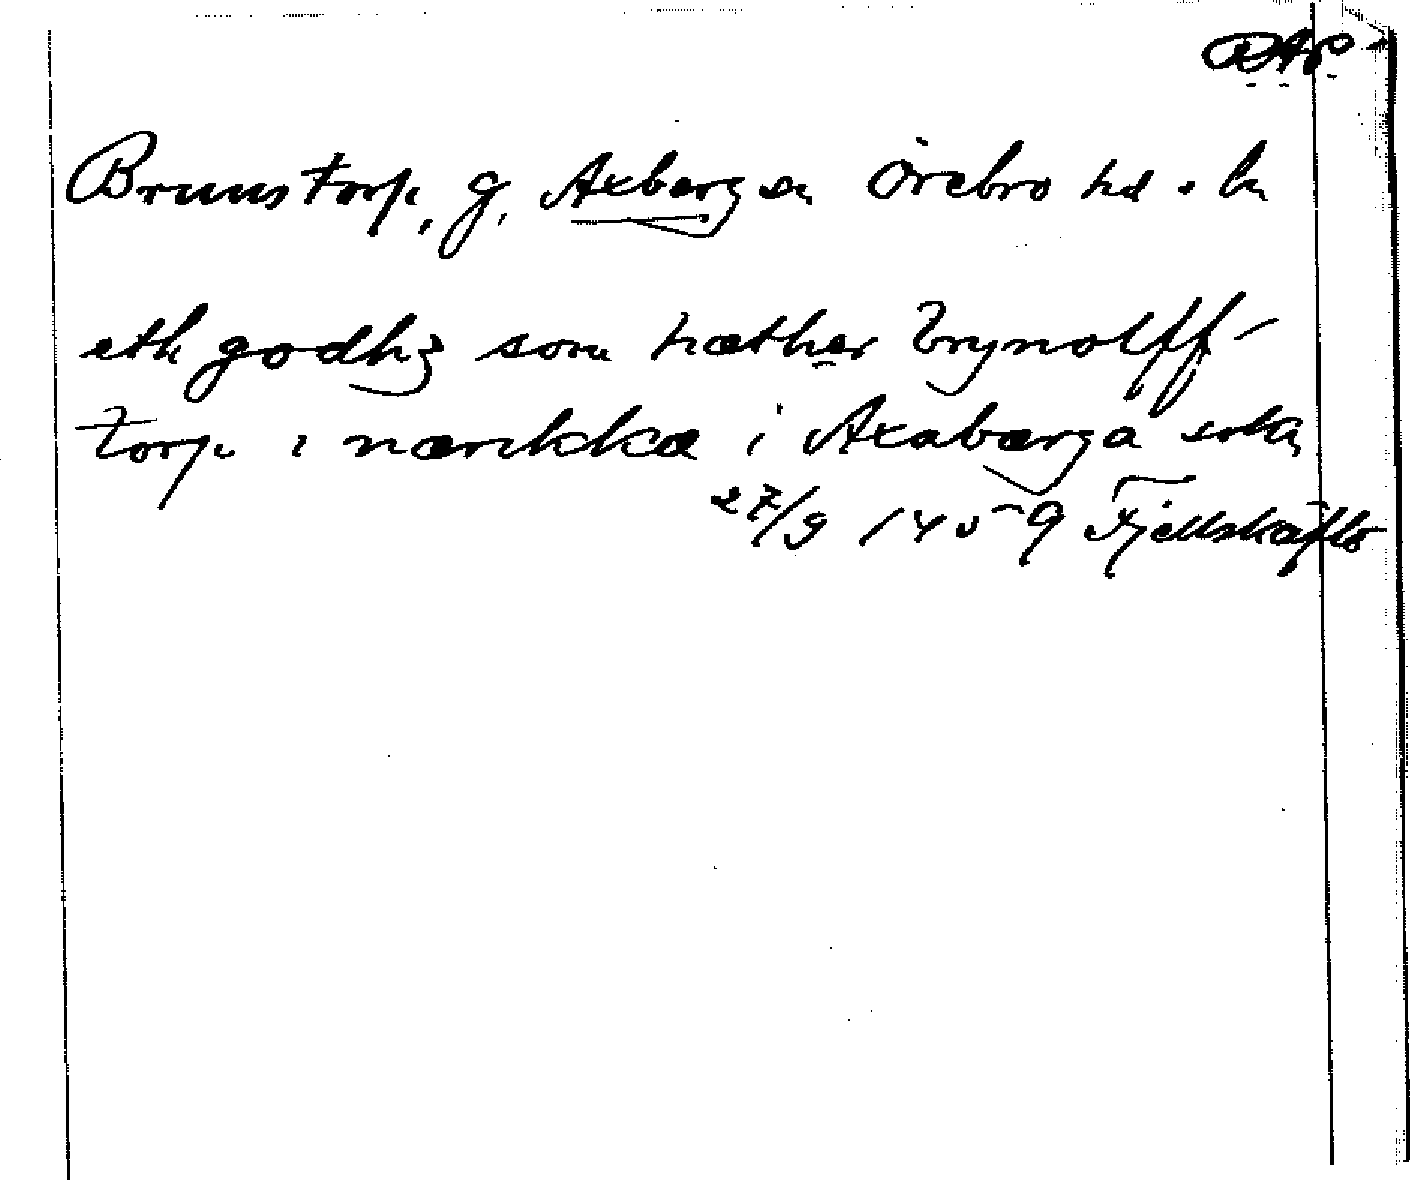 RAP
Brunstorp, g. Axbergs sn Örebro hd o ln
eth godhz som hæther brynolff-
torp i nærikkæ i Axabærga sokn
27/9 1459 Fjellskäfte